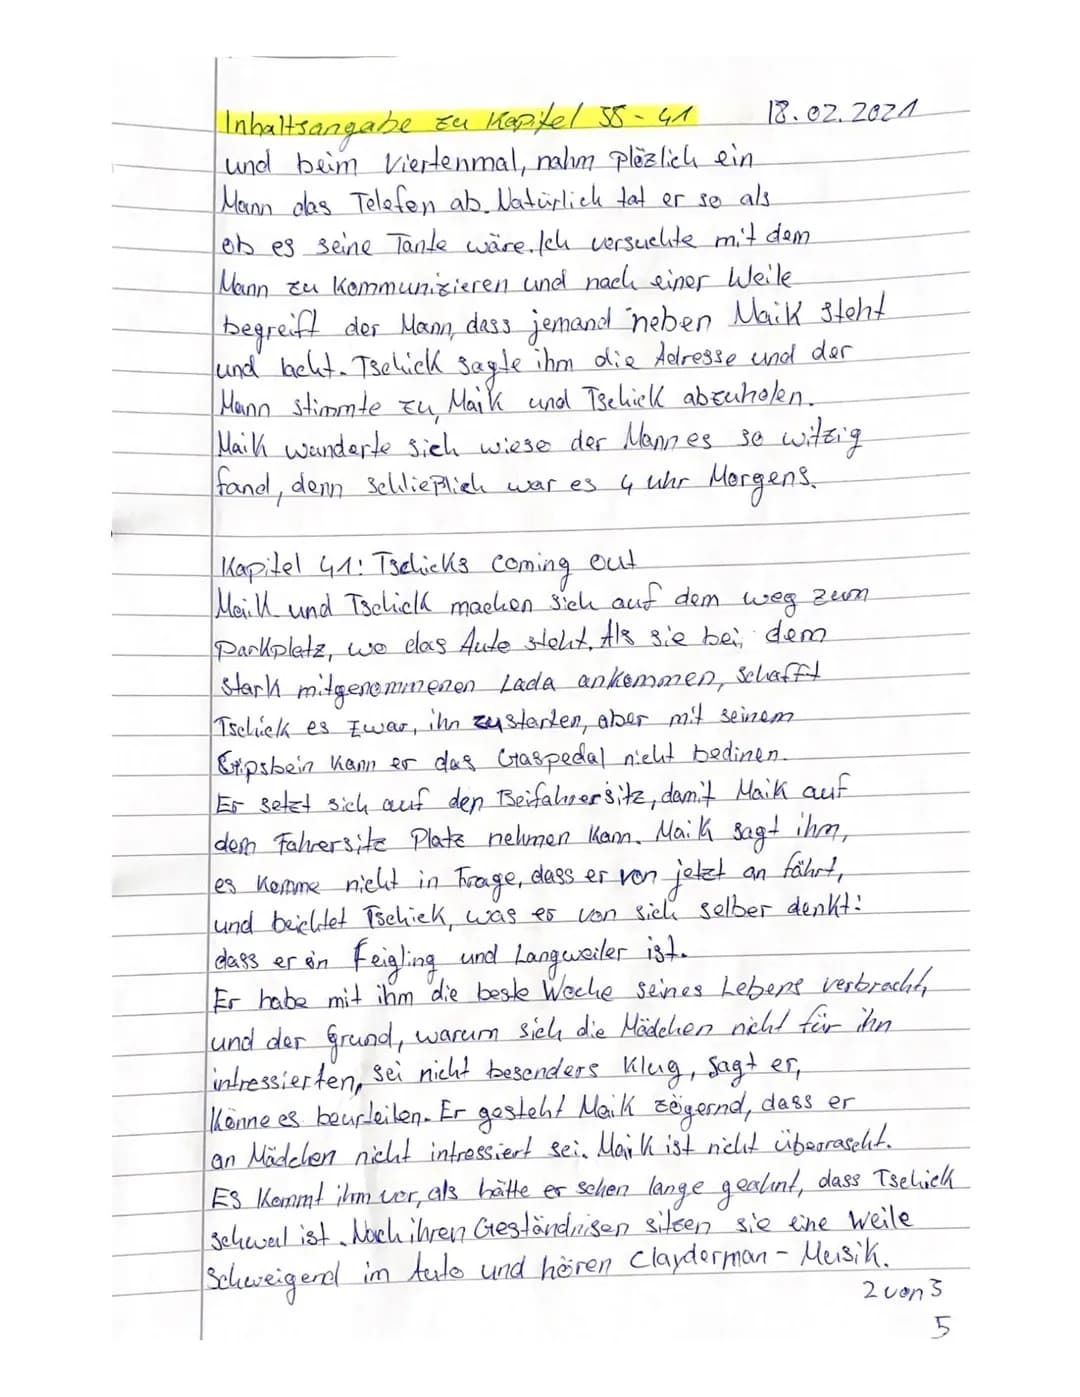 Inhaltsangabe zu Kapitel 38-41 18.02.2021
und beim Viertenmal, nahm plözlich ein
Mann das Telefon ab. Natürlich tat er so als
ob es seine Tante wäre. Ich versuchte mit dem
Mann zu kommunizieren und nach einer Weile
begreift der Mann, dass jemand neben Maik steht
und lacht. Tschick sagte ihm die Adresse und der
Mann stimmte zu, Maik und Tschick abzuholen.
Maik wunderte sich wieso der Mann es so witzig
fand, denn schließlich war es 4 uhr Morgens.
Kapitel 41: Tschicks coming out
Maik und Tschick machen sich auf dem weg zum
Parkplatz, wo das Auto steht. Als sie bei dem
stark mitgenommenen Lada ankommen, schafft
Tschick es zwar, ihn zu starten, aber mit seinem
Gipsbein kann er das Gaspedal nicht bedinen.
Er setzt sich auf den Beifahrersitz, damit Maik auf
dem Fahrersitz Platz nehmen kann. Maik sagt ihm,
es komme nicht in Frage, dass er von jetzt an fährt,
und beichtet Tschick, was er von sich selber denkt:
dass er ein Feigling und Langweiler ist.
Er habe mit ihm die beste Woche seines Lebens verbracht,
und der Grund, warum sich die Mädchen nicht für ihn
intressierten, sei nicht besonders klug, sagt er,
könne es beurteilen. Er gesteht Maik zögernd, dass er
an Mädchen nicht intressiert sei. Maik ist nicht überrascht.
Es kommt ihm vor, als hätte er schon lange geahnt, dass Tschick
schwul ist. Nach ihren Geständnisen sitzen sie eine Weile
Schweigend im Auto und hören Clayderman - Musik.
2 von 3
5